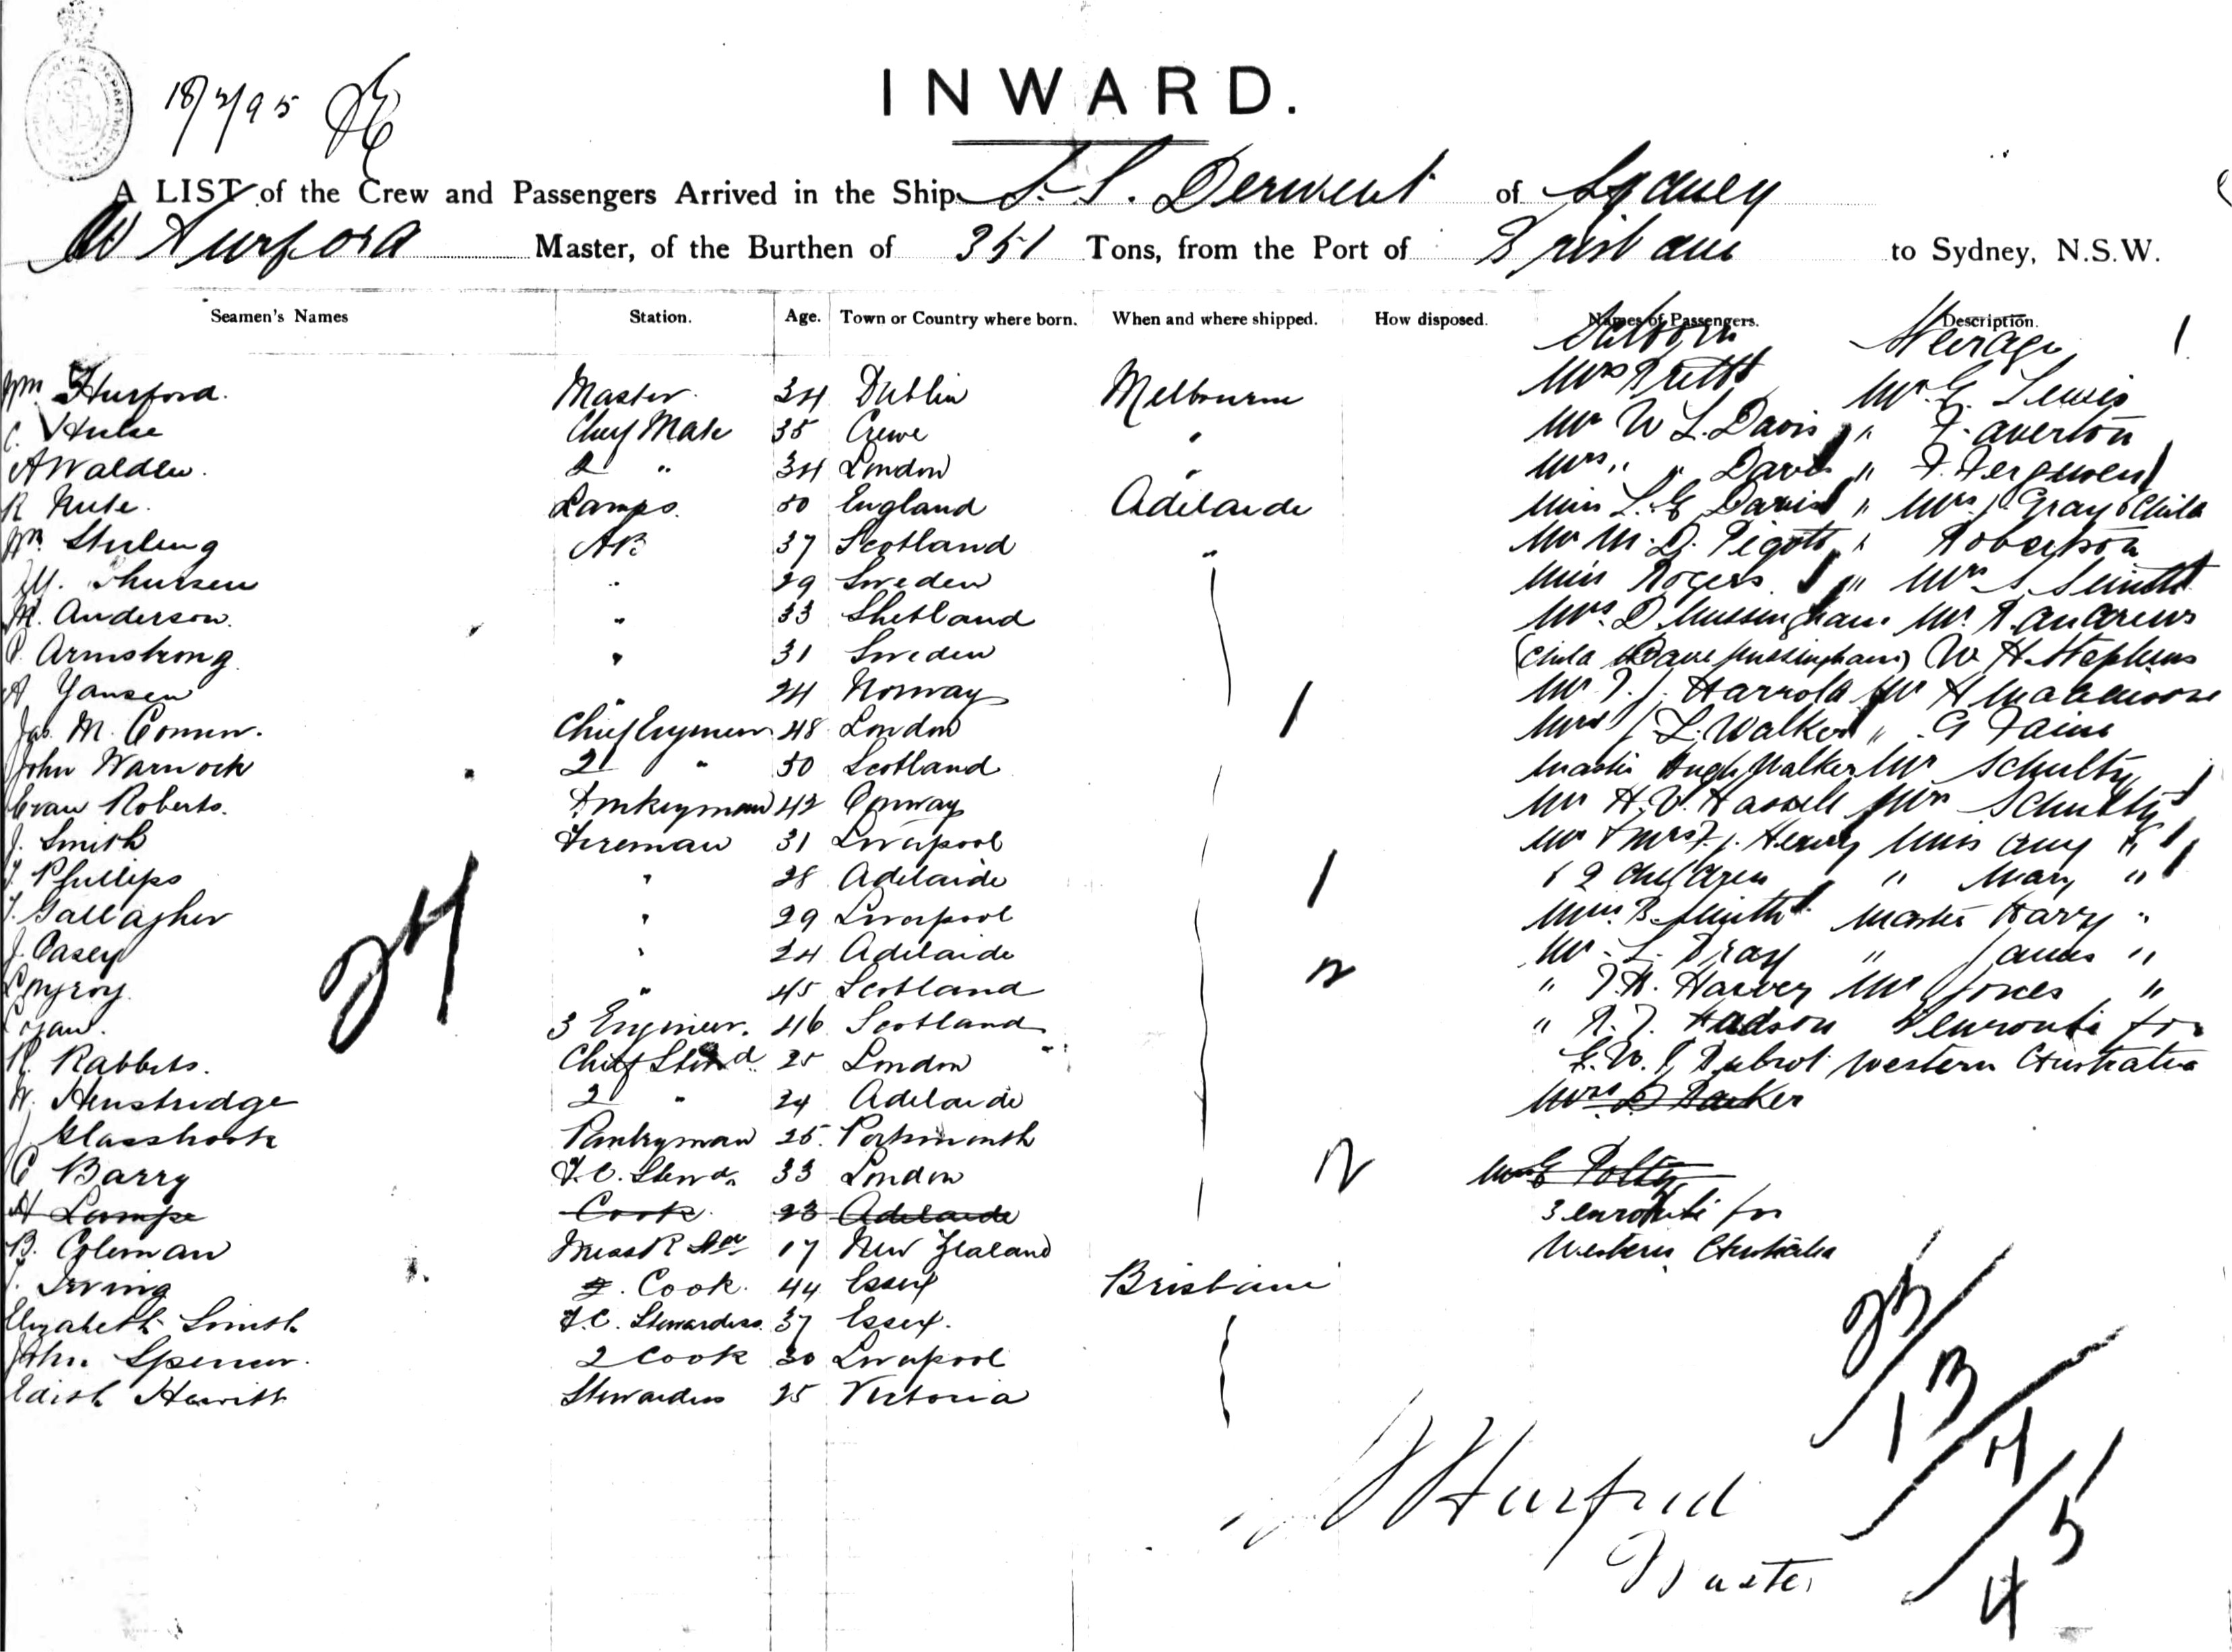 18/2/95
INWARD.
A LIST of the Crew and Passengers Arrived in the Ship S.S. Derwent of Sydney
W Hurford Master, of the Burthen of 351 Tons, from the Port of Brisbane to Sydney, N.S.W.
Seamen's Names Station. Age. Town or Country where born. When and where shipped. How disposed. Names of Passengers. Description.
Saloon Steerage
Wm Hurford. Master. 34 Dublin Melbourne Mrs Mr G. Lewis
C. Hulse Chief Mate 35 Crewe " Mr W L. Davis " F. Averton
A Walden. 2 " 34 London " Mrs " " Davis " F. Ferguson
R Nute. Lamps. 50 England Adelaide Miss L. E Davis " Mrs J. Gray & Child
Wm. Stirling AB 37 Scotland " Mr M. D. Pigott " Robertson
M. Thursen " 29 Sweden Miss Rogers " Mrs S. Smith
M. Anderson. " 33 Shetland Mrs. D Mussingham Mr. R. Andrews
P. Armstrong. " 31 Sweden (Child Dave Mussingham) W H Stephens
A Yansen " 24 Norway Mr T. J. Harrold Mr H
Jas. M. Comin. Chief Engineer 48 London J. L. Walker " G
John Warnock 2 " 50 Scotland Master Hugh Walker Mr Schultz
Evan Roberts. Donkeyman 42 Conway Mr H. V. Hassell Mrs Schultz
J. Smith Fireman 31 Liverpool Mr & Mrs F. J. Henry Miss Amy "
J. Phillips " 28 Adelaide & 2 Children " Mary "
T. Gallagher " 29 Liverpool Miss B. Smith Master Harry "
J. Casey " 24 Adelaide Mr. L. Bray " James "
" 45 Scotland " T. H. Harvey Mr Jones "
24
3 Engineer. 46 Scotland " R. T. Hadson enroute for
R. Rabbets. Chief Stew'd. 25 London G. W. Western Australia
W. Henstridge 2 " 24 Adelaide Mrs. D Parker
J Glassbrook Pantryman 25. Portsmouth
C Barry F.C. Stewd. 33 London
H Lampe Cook. 23 Adelaide 3 enroute for
B. Coleman MessR Std 17 New Zealand Western Australia
J. Irving Cook. 44 Essex Brisbane
Elizabeth Smith F.C. Stewardess. 37 Essex.
John Spencer. 2 Cook 30 Liverpool
Edith Hewitt Stewardess 25 Victoria
23/13/4/5
4
W Hurford
Master